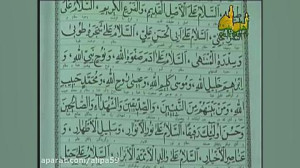 اَلسَّلامُ عَلَى الْأَصْلِ الْقَدِيمِ وَالْفَرْعِ الْكَرِيمِ اَلسَّلامُ عَلَى
الْجَنِيِّ اَلسَّلامُ عَلَى أَبِي الْحَسَنِ عَلِيٍّ اَلسَّلامُ عَلَى شَجَرَةِ طُوبى
وَسِدْرَةِ الْمُنْتَهى اَلسَّلامُ عَلَى آدَمَ صَفْوَةِ اللهِ وَنُوحٍ نَبِيِّ اللهِ وَ
إِبْرهِيمَ خَلِيلِ اللهِ وَمُوسى كَلِيمِ اللهِ وَعِيسى رُوحِ اللهِ وَمُحَمَّدٍ حَبِيبِ
اللهِ وَمَنْ بَيْنَهُمْ مِنَ النَّبِيِّينَ وَالصِّدِّيقِينَ وَالشُّهَدَاءِ وَالصَّالِحِينَ
وَحَسُنَ أُولئِكَ رَفِيقًا اَلسَّلامُ عَلَى نُورِ الْأَنْوَارِ وَسَلِيلِ الْأَطْهَارِ وَ
اَلسَّلامُ عَلَى وَالِدِ الْأَئِمَّةِ الْأَبْرَارِ اَلسَّلامُ عَلَى حَبْلِ
aparat.com/alipa59